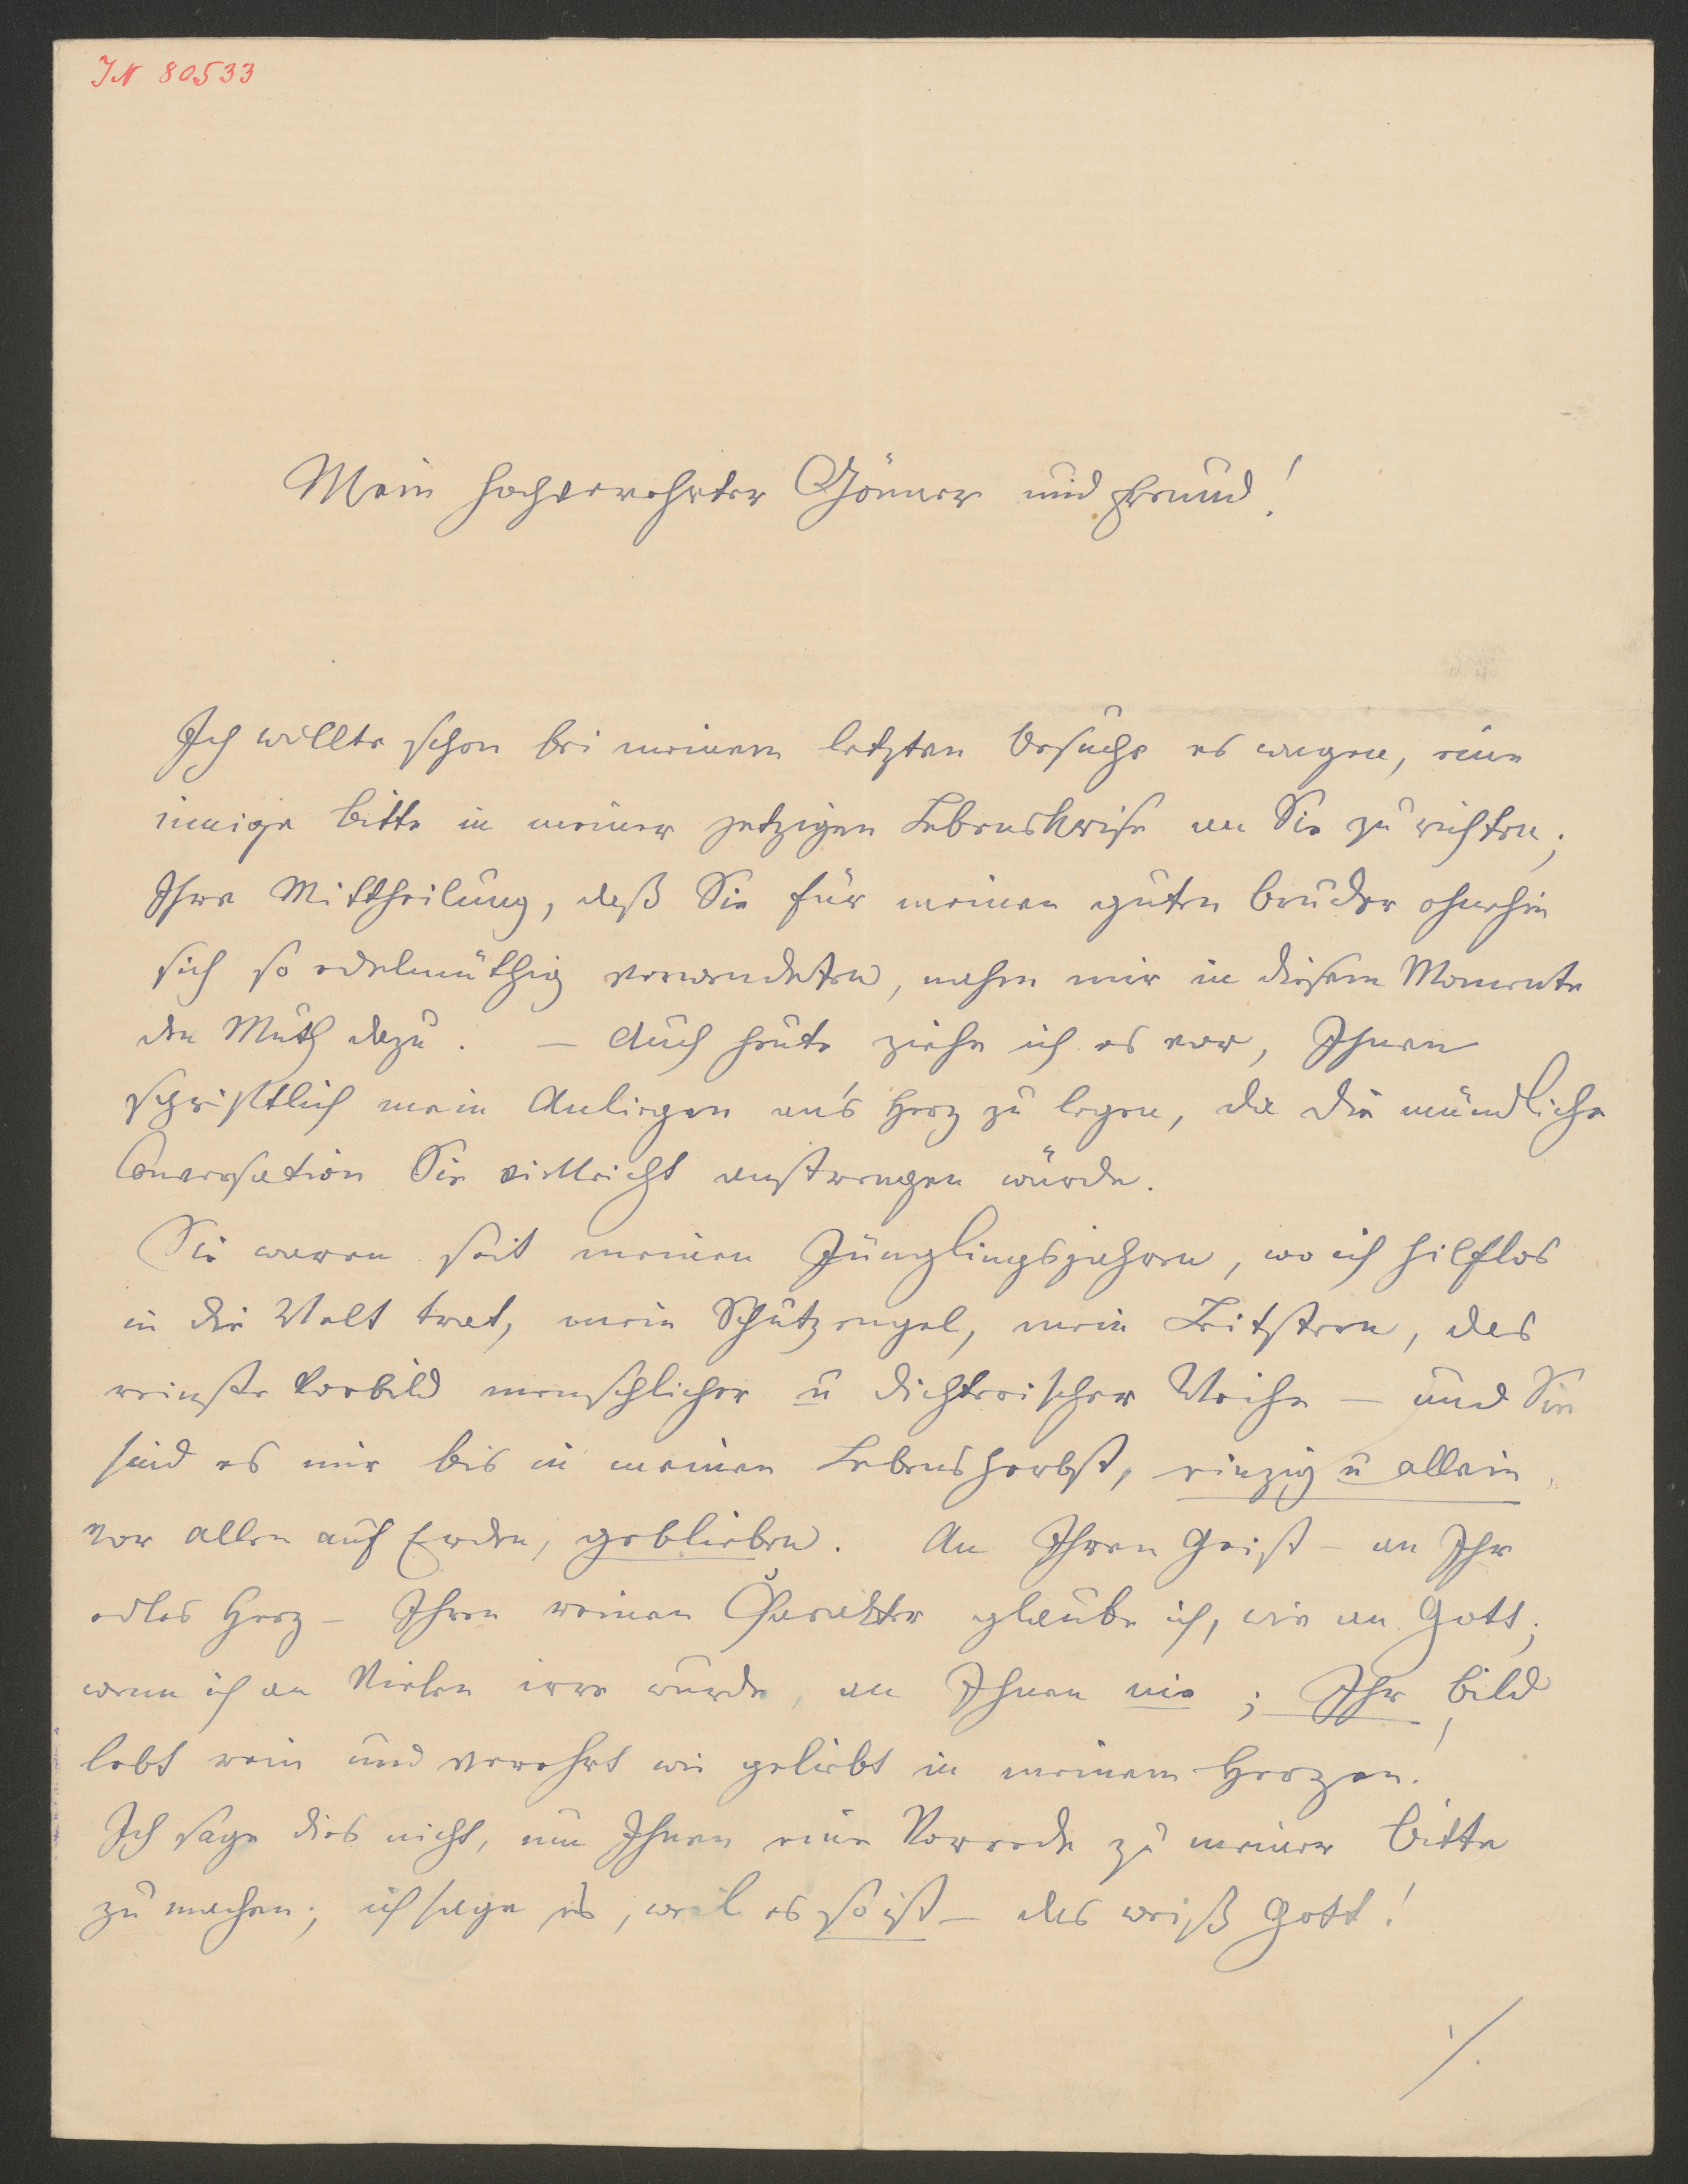 IN 80533
Mein hochverehrter Gönner und Freund!
Ich wollte schon bei meinem letzten Besuche es wagen, eine
innige Bitte in meiner jetzigen Lebenskrise an Sie zu richten;
Ihre Mittheilung, daß Sie für meinen guten Bruder ohnehin
sich so edelmüthig verwendeten, nahm mir in diesem Momente
den Muth dazu. — Auch heute ziehe ich es vor, Ihnen
schriftlich mein Anliegen an's Herz zu legen, da die mündliche
Conversation Sie vielleicht anstrengen würde.
Sie waren seit meinen Jünglingsjahren, wo ich hilflos
in die Welt trat, mein Schutzengel, mein Leitstern, das
reinste Vorbild menschlicher u dichterischer Weihe — und Sie
sind es mir bis in meinen Lebensherbst, einzig u allein,
vor allen auf Erden, geblieben. An Ihren Geist – an Ihr
edles Herz – Ihren reinen Charakter glaube ich, wie an Gott;
wenn ich an Vielen irre wurde, an Ihnen nie; Ihr Bild
lebt rein und verehrt wie geliebt in meinem Herzen!
Ich sage dies nicht, um Ihnen eine Vorrede zu meiner Bitte
zu machen; ich sage es, weil es so ist – das weiß Gott!
./.